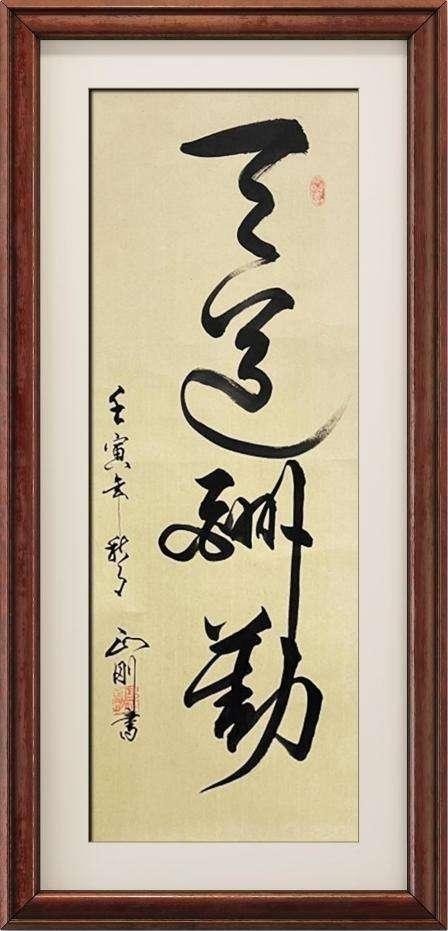 天道酬勤
壬寅年秋月 正刚书